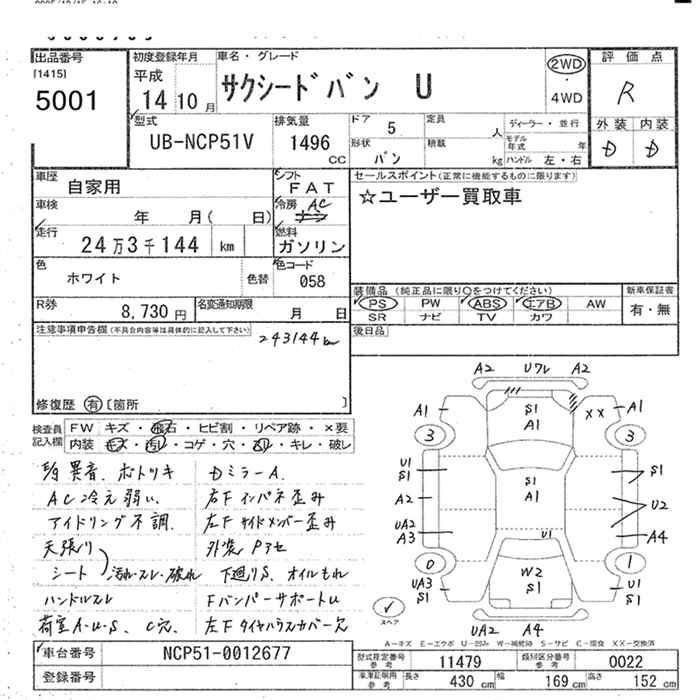 出品番号
[1415]
5001
初度登録年月
平成
14 10 月
車名・グレード
サクシードバン U
2WD
・
4WD
評価点
R
外装 内装
D D
型式
UB-NCP51V
排気量
1496
CC
ドア 5
形状 バン
定員 人
積載 kg
ディーラー・並行
モデル年式 年
ハンドル 左・右
車歴
自家用
シフト
FAT
セールスポイント(正常に機能するものに限ります)
☆ユーザー買取車
車検
年 月( 日)
冷房 AC
走行
24万3千144 km
燃料
ガソリン
色
ホワイト
色替
色コード
058
装備品(純正品に限り○をつけてください)
PS PW ABS エアB AW
SR ナビ TV カワ
新車保証書
有・無
R券
8,730 円
名変通知期限
月 日
後日品
注意事項申告欄(不具合内容等は具体的に記入して下さい)
243144km
修復歴 有 [箇所 ]
検査員
記入欄
FW キズ・飛石・ヒビ割・リペア跡・×要
内装 キズ・汚レ・コゲ・穴・スレ・キレ・破レ
異音.ホトリキ
AC冷え弱い.
アイドリング不調.
天張り
シート 汚れ・スレ・破れ
ハンドルスレ
荷室A・U・S、C穴.
DミラーA.
右Fインパネ歪み
左Fサイドメンバー歪み
外装Pアセ
下廻りS、オイルもれ
FバンパーサポートU
左Fタイヤハウスカバー欠
A2 Uワレ A2
A1 S1 A1 XX A1
3 3
U1 S1
S1
A2 S1 A1 U2
UA2 A3 U1 A4
0 1
UA3 S1 W2 S1 U1 S1
UA2 A4
スペア
A−キズ E−エクボ U−凹み W−補修跡 S−サビ C−腐食 XX−交換済
車台番号
NCP51-0012677
登録番号
型式指定番号
参考
11479
類別区分番号
参考
0022
車庫証明用
参考
長さ 430 cm
幅 169 cm
高さ 152 cm